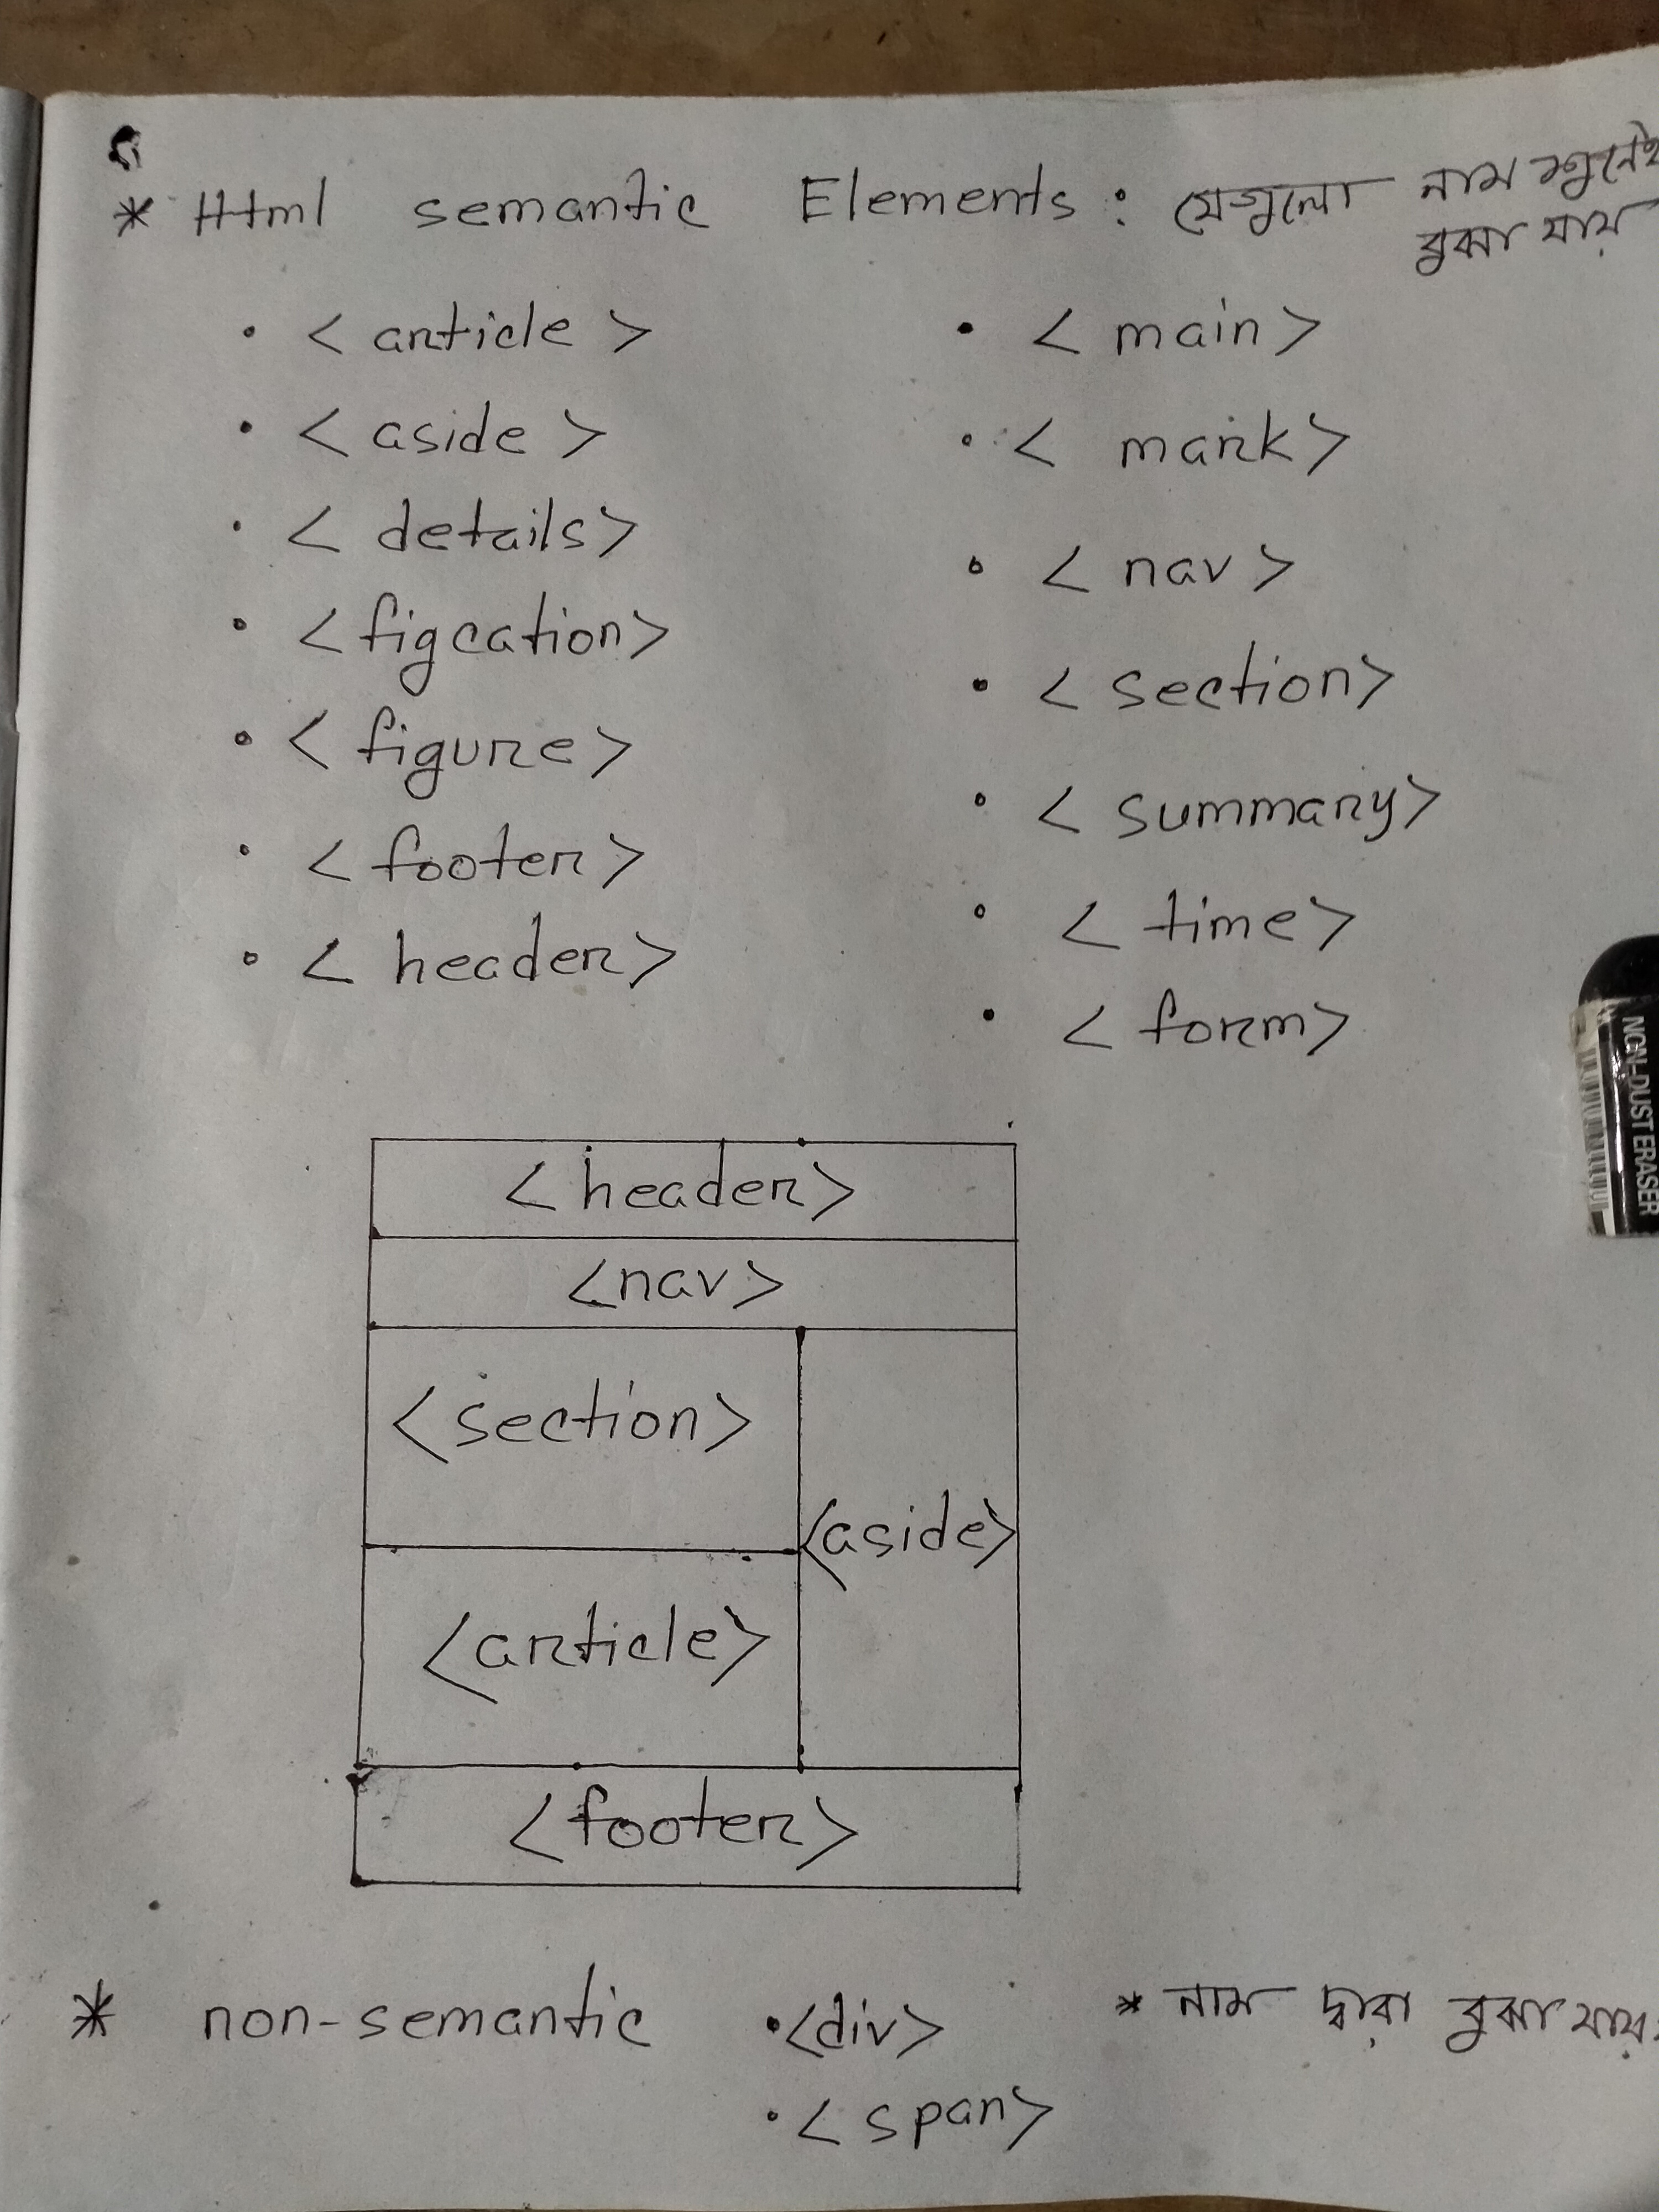 * Html semantic Elements : যেগুলো নাম শুনেই
বুঝা যায়
• < article >
• < aside >
• < details>
• <figcation>
• < figure>
• < footer>
• < header>
• < main>
• < mark>
• < nav >
• < section>
• < summary>
• < time>
• < form>
<header>
<nav>
<section>
<aside>
<article>
<footer>
* non-semantic • <div> * নাম দ্বারা বুঝা যায়
• < span>
NON-DUST ERASER